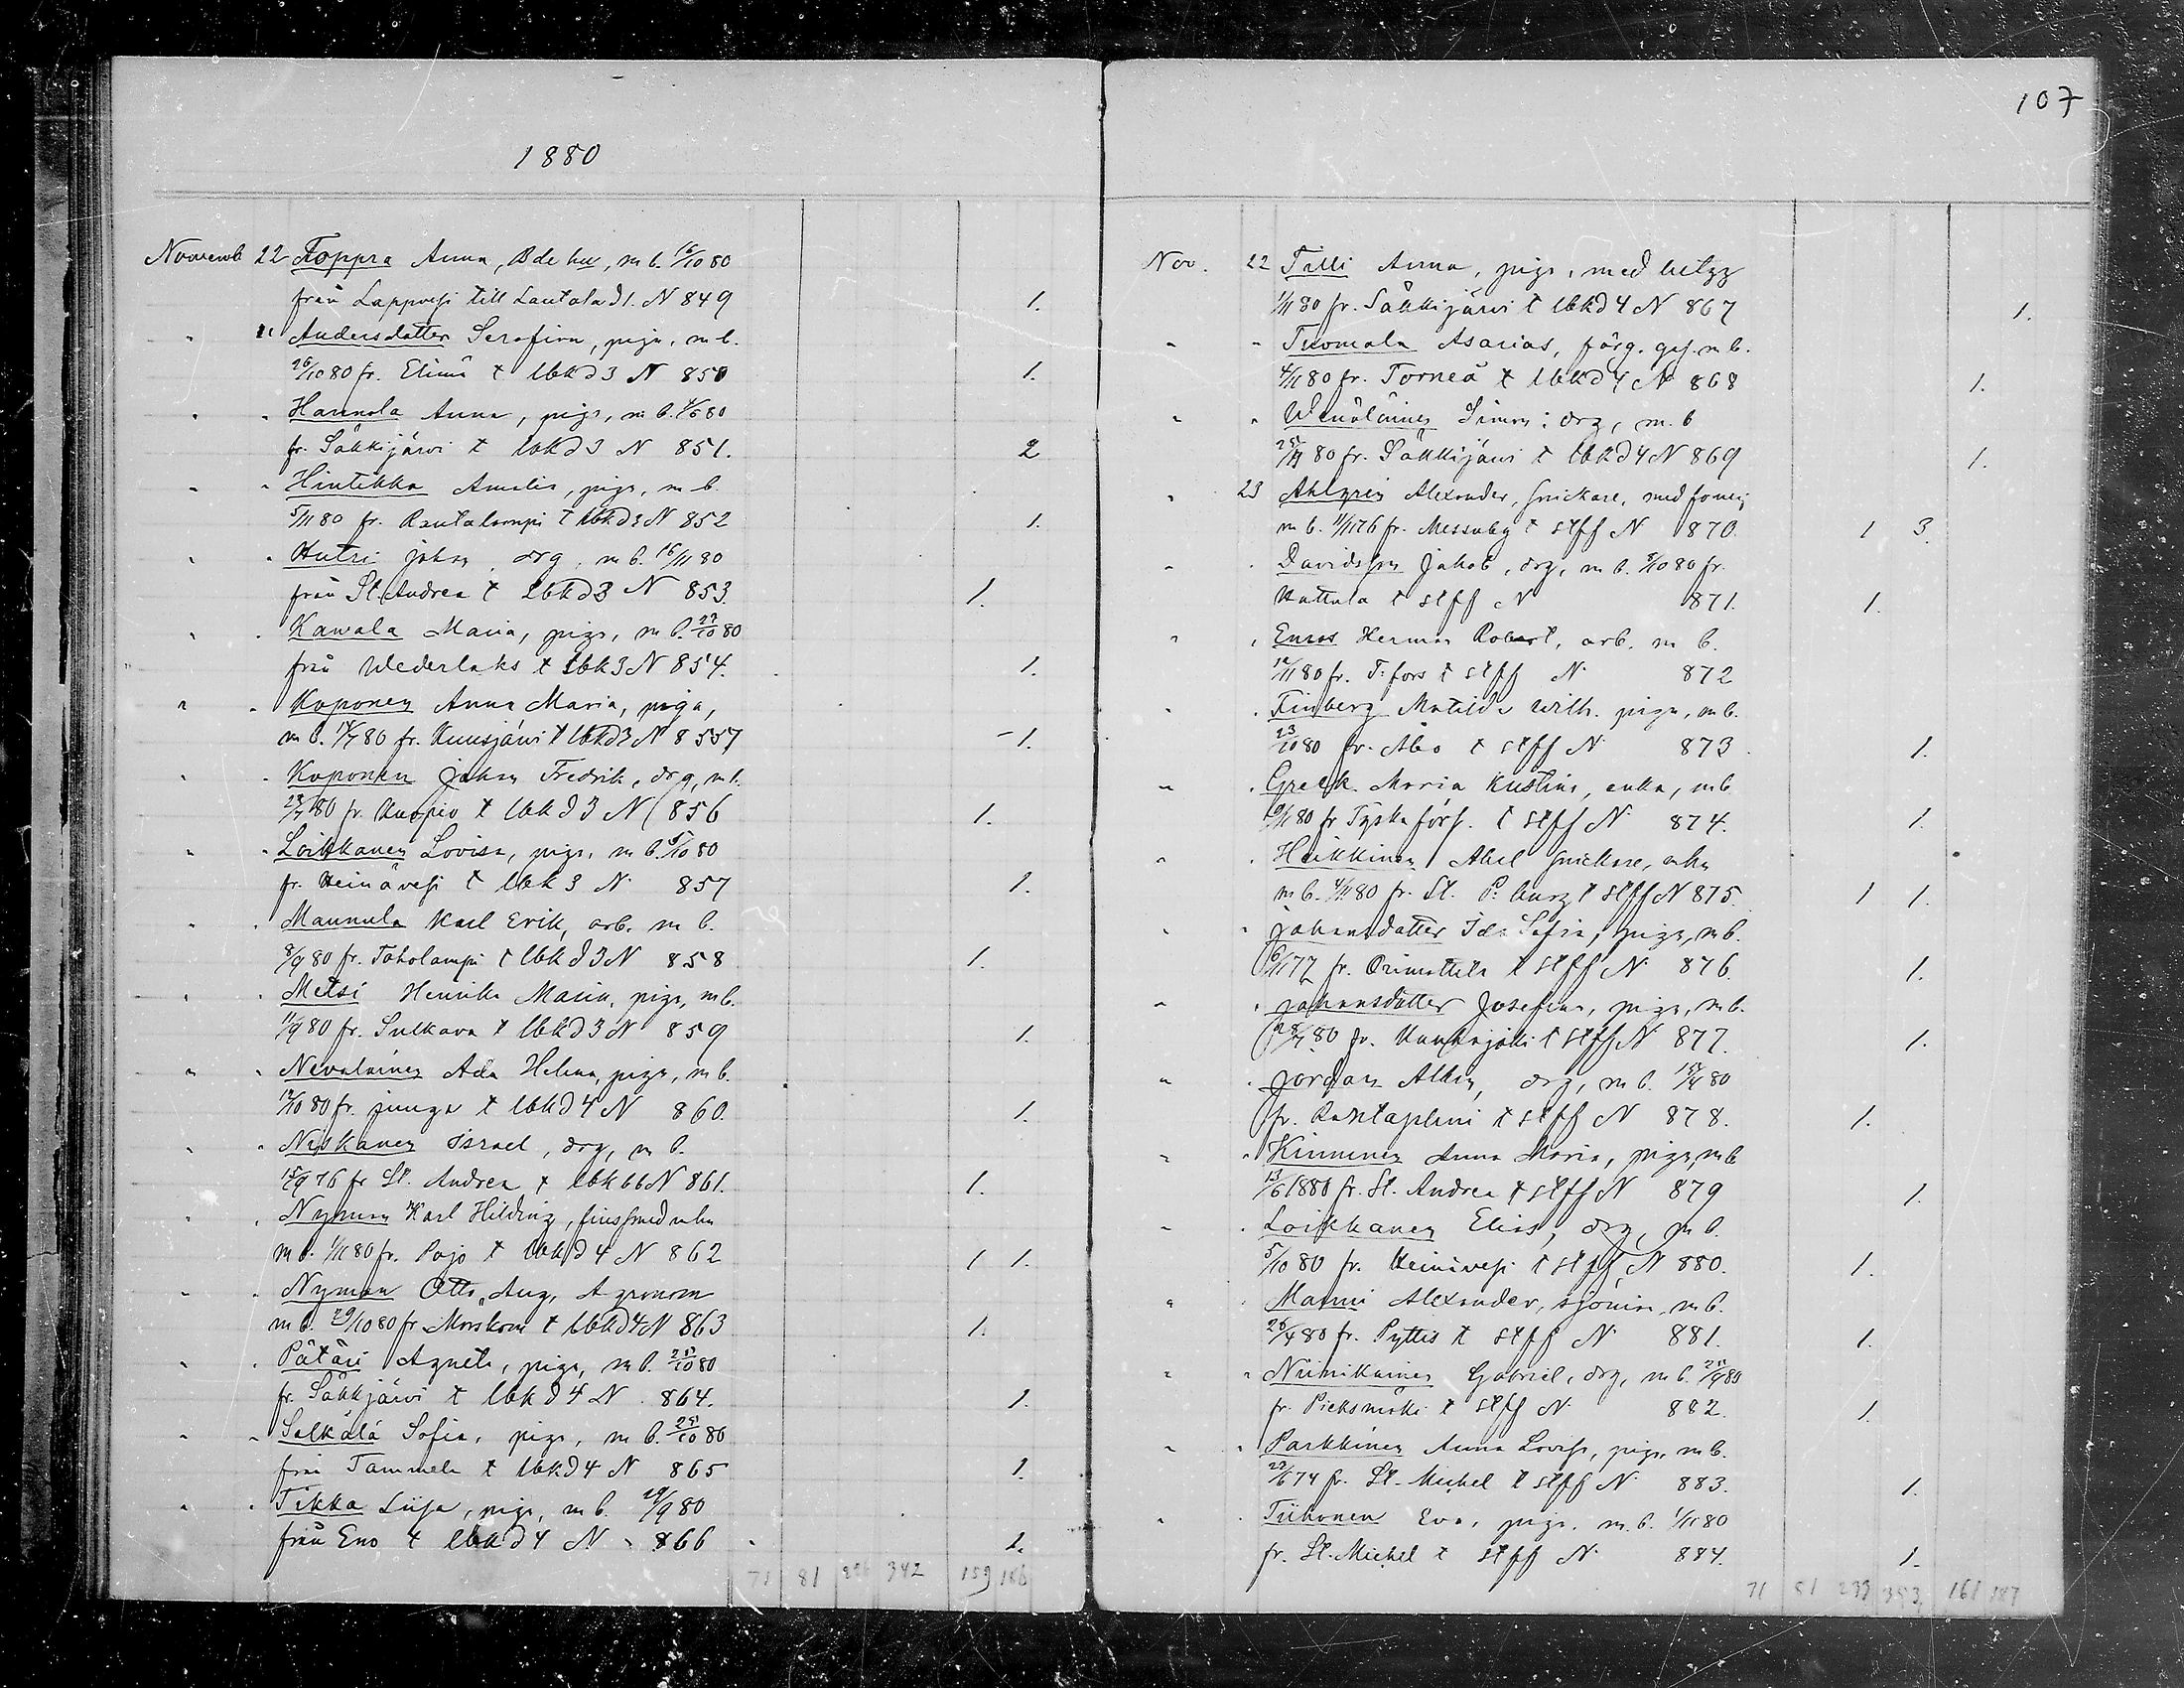 1880
Novemb 22 Toppra Anna, Bde hu, m b. 16/10 80
från Lappvesi till Lautala d 1. N 849 1.
" 11 Andersdotter Serafina, piga, m b.
26/10 80 fr. Elimä t lbkd 3 N 850 1.
" " Hannola Anna, piga, m b. 80
fr. Säkkijärvi t lbkd 3 N 851. 2
" " Hintikka Amalia, piga, m b.
5/11 80 fr. Rautalampi t lbkd 3 N 852 1.
" " Hutri Johan, drg, m b. 16/11 80
från St. Andrea t lbkd 3 N 853. 1.
" " Kawala Maria, piga, m b. 27/10 80
från Wederlaks t lbk 3 N 854. 1.
" " Koponen Anna Maria, piga,
m b. 80 fr. Kuusjärvi t lbkd 3 N 8557 1.
" " Koponen Johan Fredrik, drg, m b.
80 fr. Kuopio t lbkd 3 N 856 1.
" " Loikkanen Lovisa, piga, m b. 5/10 80
fr. Heinävesi t lbk 3 N 857 1.
" " Mannula Karl Erik, arb. m b.
8/9 80 fr. Toholampi t lbkd 3 N 858 1.
" " Metsi Henrika Maria, piga, m b.
11/9 80 fr. Sulkava t lbkd 3 N 859 1.
" " Nevalainen Ada Helena, piga, m b.
12/10 80 fr. Junga t lbkd 4 N 860. 1.
" " Niskanen Israel, drg, m b.
15/9 76 fr St. Andrea t lbk 66 N 861. 1.
" " Nyman Karl Hilding, finsmed
m b. 1/11 80 fr. Pojo t lbkd 4 N 862 1 1.
" " Nyman Otto Aug. Agronom
m b. 29/10 80 fr Morskom t lbkd 4 N 863 1.
" " Pätäri Agneta, piga, m b. 25/10 80
fr. Säkkjärvi t lbkd 4 N 864. 1.
" " Salkälä Sofia, piga, m b. 25/10 80
från Tammela t lbkd 4 N 865 1.
" " Tikka Liisa, piga, m b. 29/9 80
från Eno t lbkd 4 N 866 1.
71 81 226 342 159 186
107
Nov. 22 Tilli Anna, piga, med
1/11 80 fr. Säkkijärvi t lbkd 4 N 867 1.
" " Tuomala Asarias, färg. ges. m b.
4/11 80 fr. Torneå t lbkd 4 N 868 1.
" " Wenäläinen Simon: drg, m. b
80 fr. Säkkijärvi t lbkd 4 N 869 1.
" 23 Ahlgren Alexander, snickare, med familj
m b. 11/11 76 fr. Messuby t stff N 870. 1 3.
" " Davidsson Jakob, drg, m b. 8/10 80 fr.
Hattula t stff N 871. 1.
" " Enros Herman Robert, arb. m b.
12/11 80 fr. T:fors t stff N 872
" " Finberg Matilda Wilh. piga, m b.
23/10 80 fr. Åbo t stff N 873 1.
" " Grelk Maria Kristina, enka, m b
9/11 80 fr Tyska förs. t stff N 874. 1.
" " Heikkinen Abel snickare,
m b. 4/11 80 fr. St. P:burg t stff N 875. 1 1.
" " Johansdotter Ida Sofia, piga, m b.
6/11 77 fr. Orimattila t stff N 876. 1.
" " Johansdotter Josefina, piga, m b.
80 fr. Kankajoki t stff N 877. 1.
" " Jordan Albin, drg, m b. 80
fr. t stff N 878. 1.
" " Kinnunen Anna Maria, piga, m b
13/6 1880 fr. St. Andrea t stff N 879 1.
" " Loikkanen Elias, drg, m b.
5/10 80 fr. Heinävesi t stff N 880. 1.
" " Manni Alexander, sjöman, m b.
26/4 80 fr. Pyttis t stff N 881. 1.
" " Niinikainen Gabriel, drg, m b. 80
fr. Pieksmäki t stff N 882. 1.
" " Parkkinen Anna Lovisa, piga, m b.
74 fr. St. Michel t stff N 883. 1.
" " Tiihonen Eva, piga. m. b. 80
fr. St. Michel t stff N 884. 1.
71 81 233 353 161 187